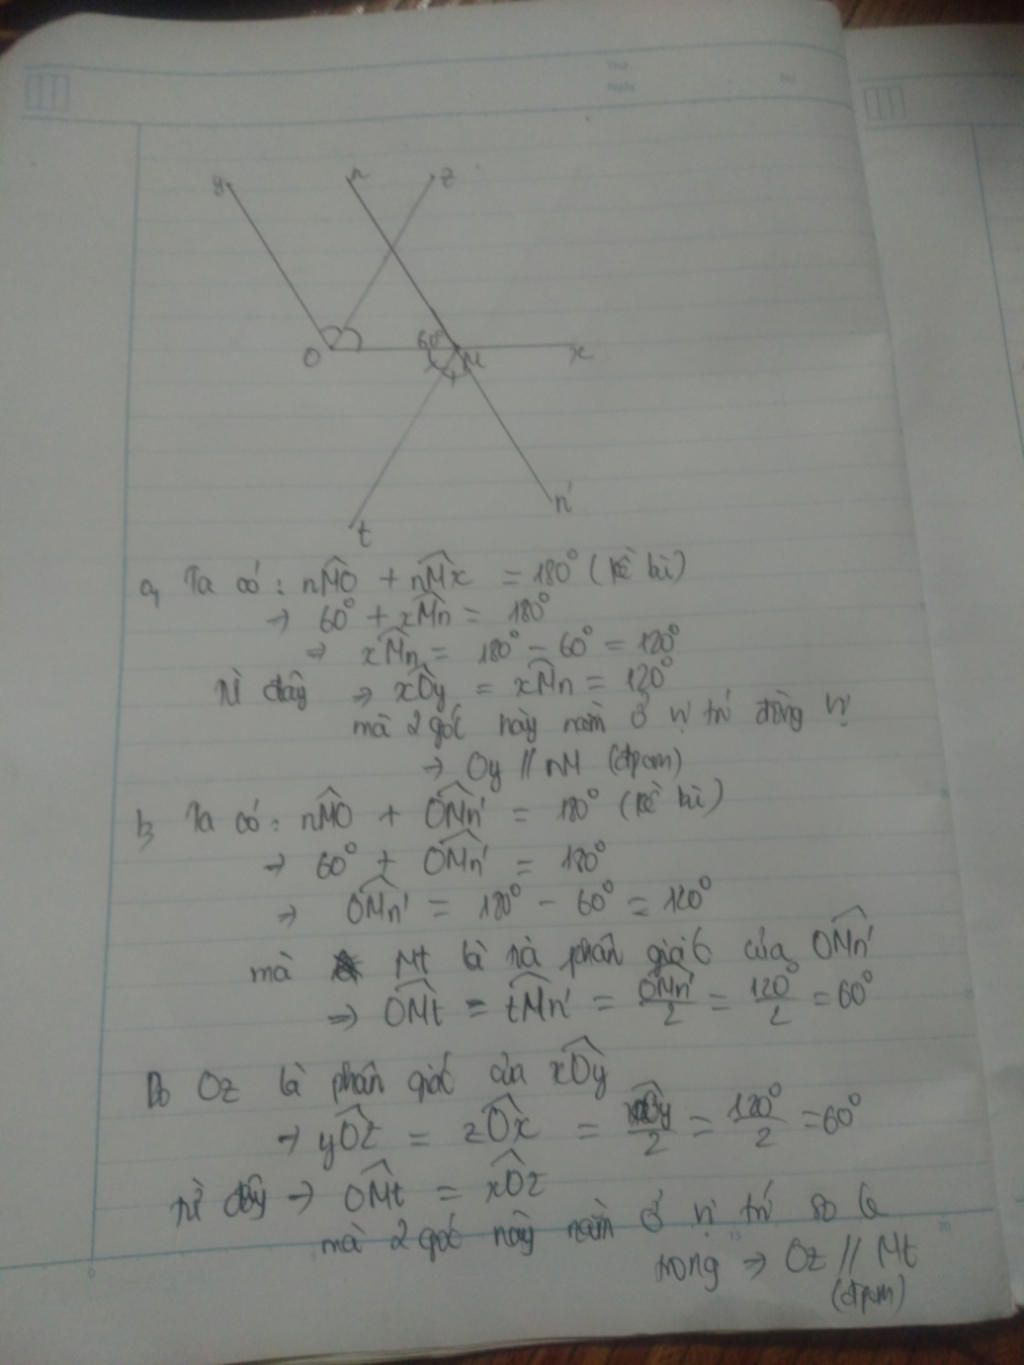 y n z
O 60° M x
t n'
a, Ta có: nM̂O + nM̂x = 180° (kề bù)
→ 60° + xM̂n = 180°
→ xM̂n = 180° - 60° = 120°
Từ đây → xÔy = xM̂n = 120°
mà 2 góc này nằm ở vị trí đồng vị
→ Oy // nM (đpcm)
b, Ta có: nM̂O + OM̂n' = 180° (kề bù)
→ 60° + OM̂n' = 180°
→ OM̂n' = 180° - 60° = 120°
mà Mt là tia phân giác của OM̂n'
→ OM̂t = tM̂n' = OM̂n'/2 = 120°/2 = 60°
Do Oz là phân giác của xÔy
→ yÔz = zÔx = xÔy/2 = 120°/2 = 60°
Từ đây → OM̂t = xÔz
mà 2 góc này nằm ở vị trí so le
trong → Oz // Mt
(đpcm)